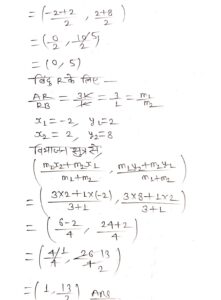 = (-2+2/2 , 2+8/2)
= (0/2 , 10/2 5)
= (0, 5)
बिंदु R के लिए —
AR/RB = 3K/K = 3/1 = m₁/m₂
x₁ = -2, y₁=2
x₂ = 2, y₂=8
विभाजन सूत्र से,
(m₁x₂+m₂x₁/m₁+m₂ , m₁y₂+m₂y₁/m₁+m₂)
= (3×2+1×(-2)/3+1 , 3×8+1×2/3+1)
= (6-2/4 , 24+2/4)
= (4/4 1 , 26 13/4 2)
= (1, 13/2) Ans